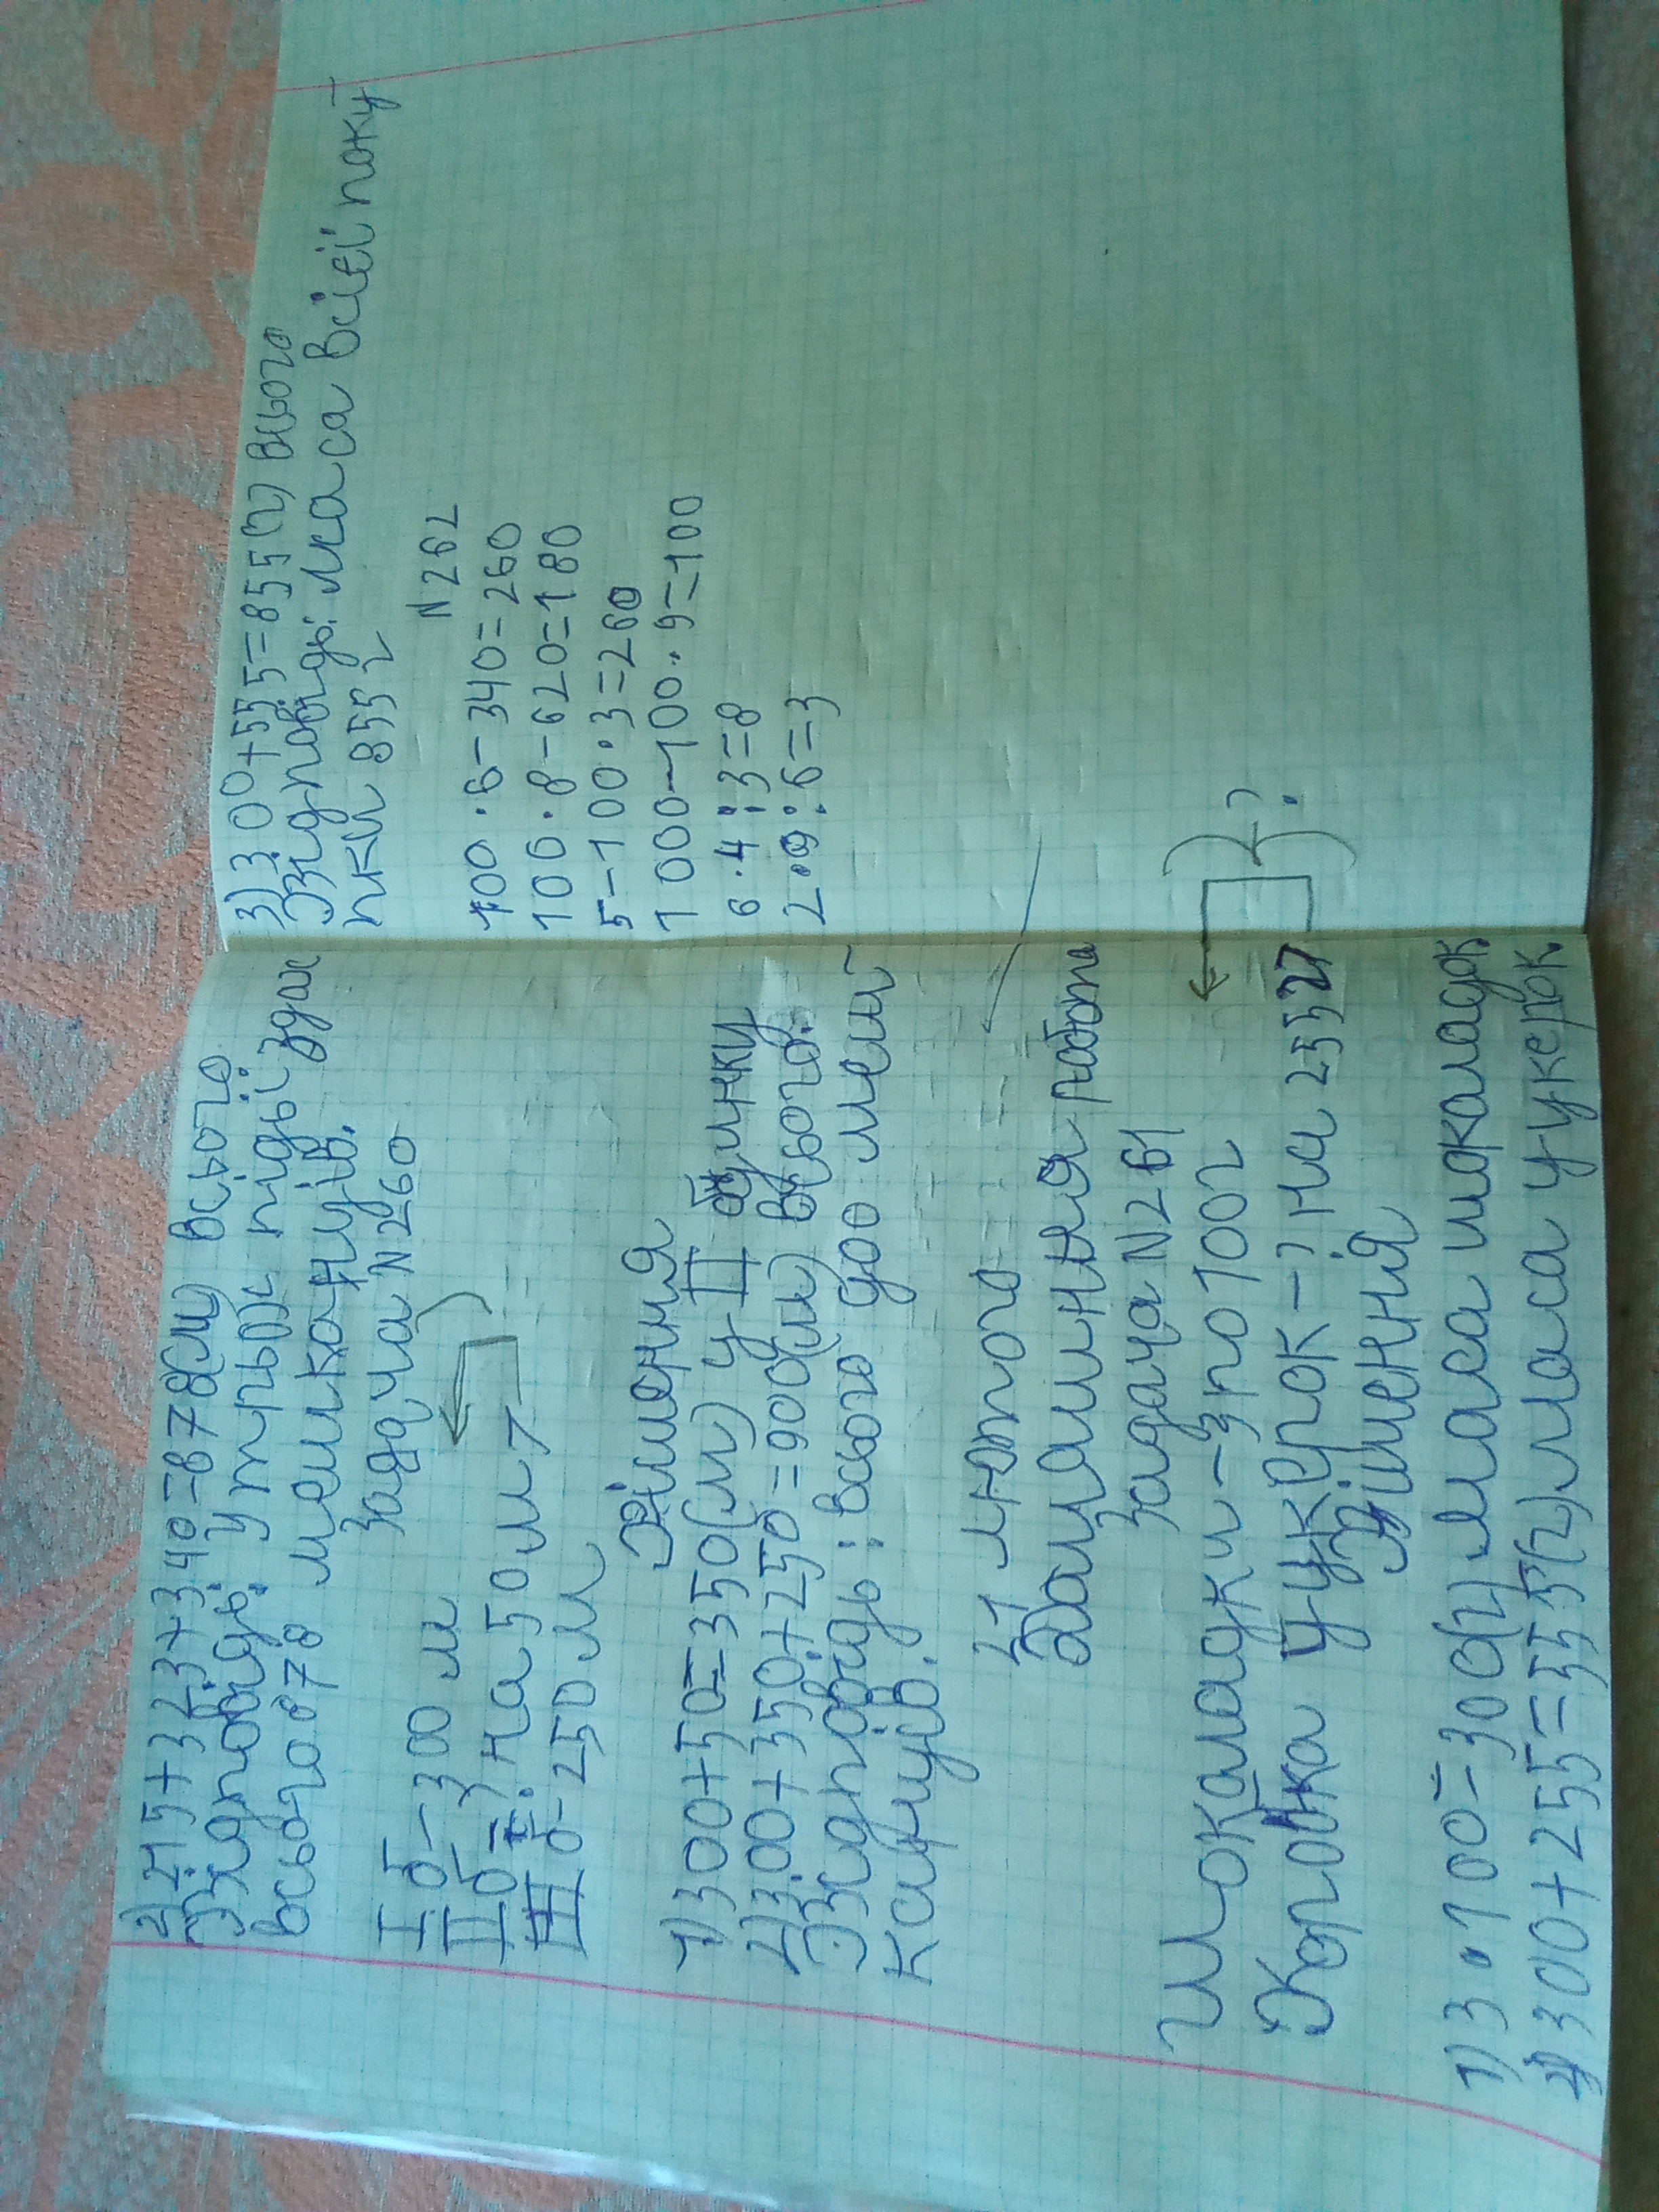 2) 215+323+340=878(м) всього
Відповідь: у трьох під'їздах
всього 878 мешканців.
Задача N260
І б – 300 м
ІІ б – ? на 50 м >
ІІІ б – 250 м
Рішення
1) 300+50=350(м) у ІІ будинку
2) 300+350+250=900(м) всього.
Відповідь: всього 900 меш-
канців.
21 лютого
Домашня робота
Задача N261
Шоколадки – 3 по 100г
Коробка цукерок – ? на 255г
?
Рішення
1) 3·100=300(г) маса шоколадок
2) 300+255=555(г) маса цукерок
3) 300+555=855(г) всього
Відповідь: маса всієї поку-
пки 855 г
N 262
100·6-340=260
100·8-620=180
5-100·3=260
1000-100·9=100
6·4:3=8
2·9:6=3